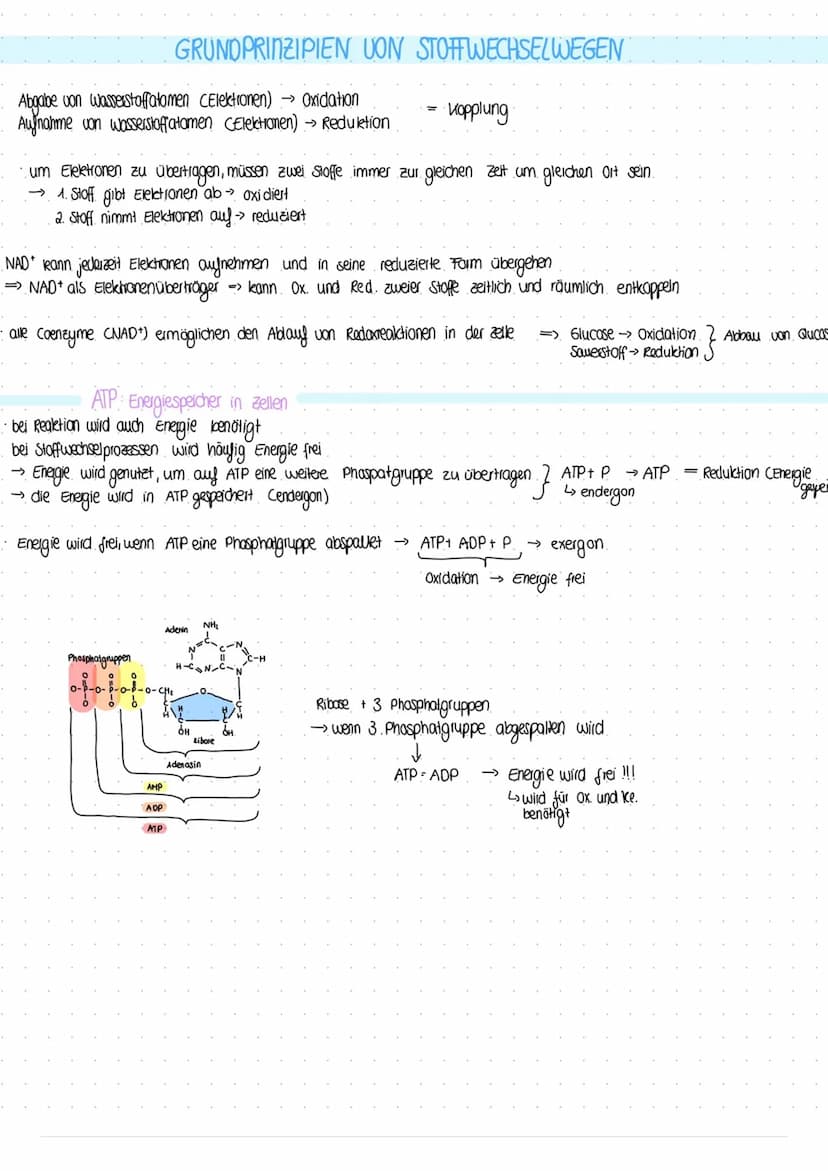 GRUNDPRINZIPIEN VON STOFFWECHSELWEGEN
Abgabe von Wasserstoffatomen (Elektronen) → Oxidation
Aufnahme von Wasserstoffatomen (Elektronen) → Reduktion
= Kopplung
· um Elektronen zu übertragen, müssen zwei Stoffe immer zur gleichen Zeit am gleichen Ort sein
→ 1. Stoff gibt Elektronen ab → oxidiert
2. Stoff nimmt Elektronen auf → reduziert
NAD⁺ kann jederzeit Elektronen aufnehmen und in seine reduzierte Form übergehen
⇒ NAD⁺ als Elektronenüberträger ⇒ kann Ox. und Red. zweier Stoffe zeitlich und räumlich entkoppeln
· alle Coenzyme (NAD⁺) ermöglichen den Ablauf von Redoxreaktionen in der Zelle ⇒ Glucose → Oxidation } Abbau von Glucos
Sauerstoff → Reduktion
ATP: Energiespeicher in Zellen
· bei Reaktion wird auch Energie benötigt
bei Stoffwechselprozessen wird häufig Energie frei
→ Energie wird genutzt, um auf ATP eine weitere Phospatgruppe zu übertragen } ATP + P → ATP = Reduktion (Energie
→ die Energie wird in ATP gespeichert (endergon) ↳ endergon
· Energie wird frei, wenn ATP eine Phosphatgruppe abspaltet → ATP+ ADP + P → exergon
Oxidation → Energie frei
Adenin NH₂
N C C N
C-H
H-C N C N
Phosphatgruppen
O O O
O-P-O-P-O-P-O-CH₂ O
O O O
C H H C
H C C H
OH OH
Ribose
Adenosin
AMP
ADP
ATP
Ribose + 3 Phosphatgruppen
→ wenn 3. Phosphatgruppe abgespalten wird
↓
ATP = ADP → Energie wird frei !!!
↳ wird für Ox. und Re.
benötigt